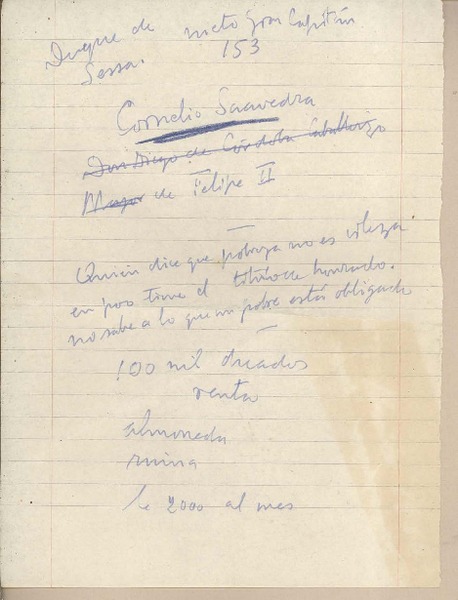 Duque de nieto Gran Capitán
Sessa. 153
Cornelio Saavedra
Don Diego de Córdoba Caballerizo
Mayor de Felipe II
Quien dice que pobreza no es vileza
en poco tiene el título de honrado.
no sabe a lo que un pobre está obligado
100 mil ducados
renta
almoneda
ruina
le 2000 al mes